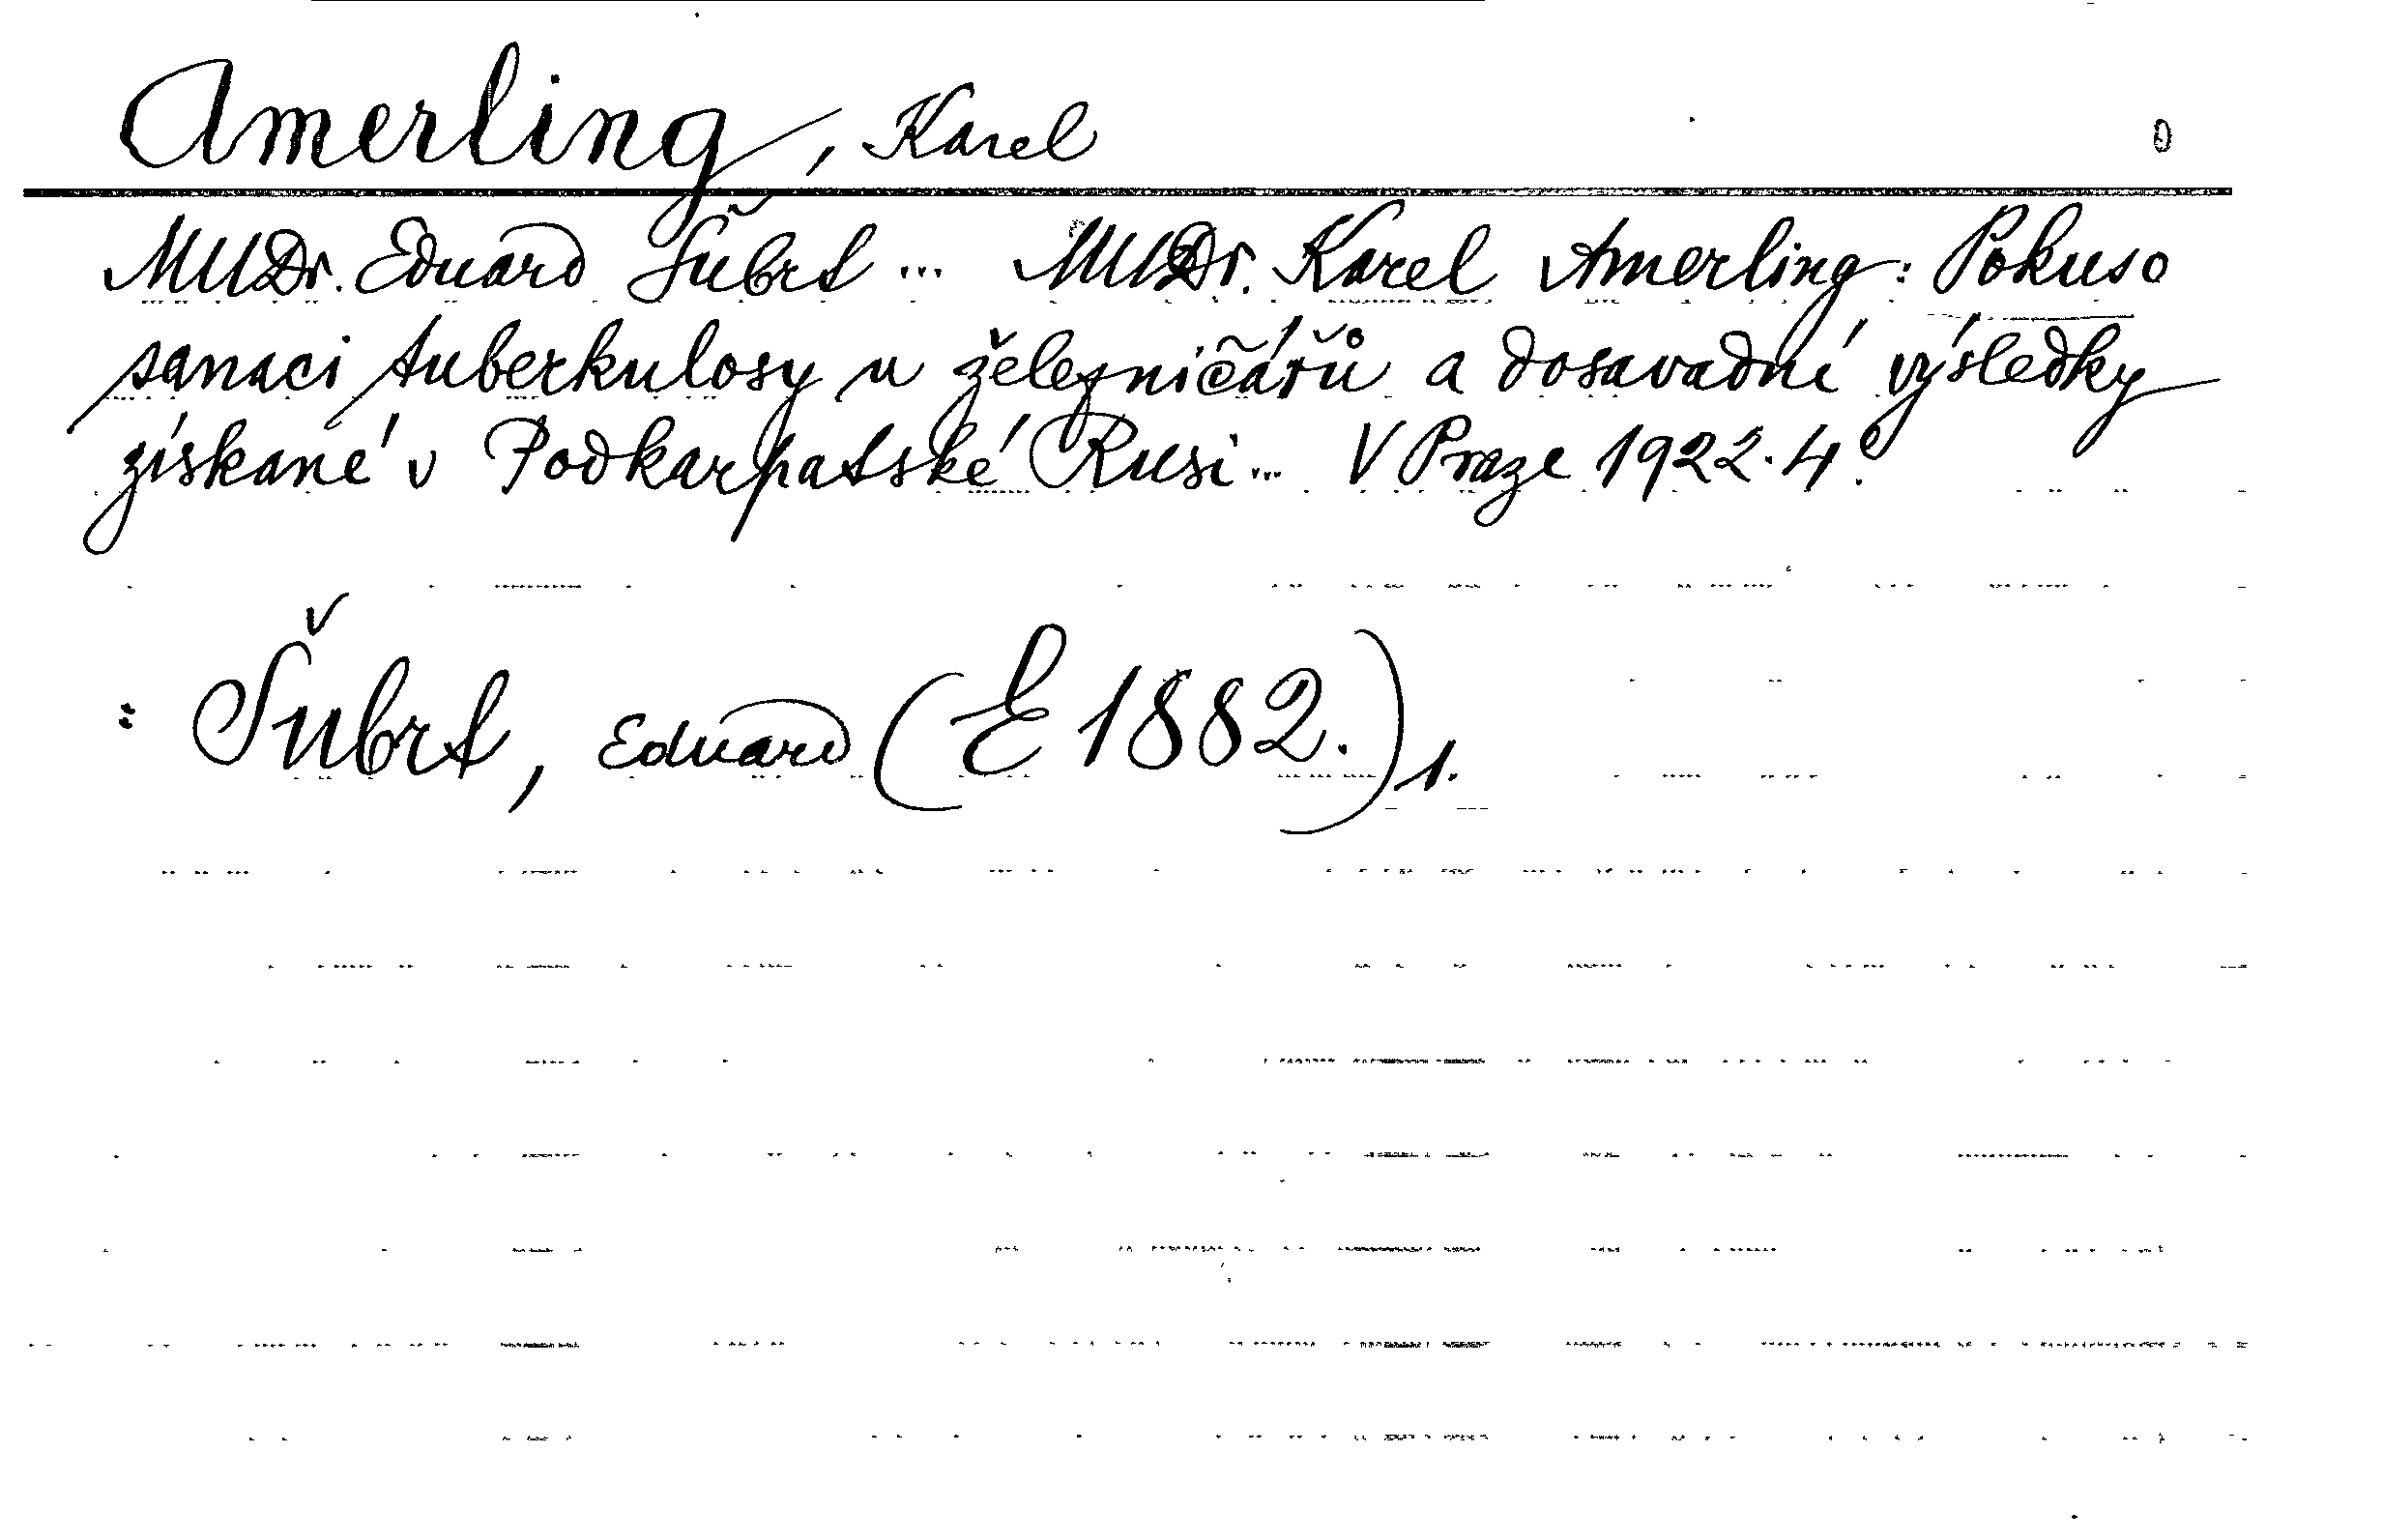 Amerling, Karel
MUDr. Eduard Šubrt ... MUDr. Karel Amerling: Pokus o
sanaci tuberkulosy u železničářů a dosavadní výsledky
získané v Podkarpatské Rusi ... V Praze 1922. 4°.
: Šubrt, Eduard (E 1882.) 1.